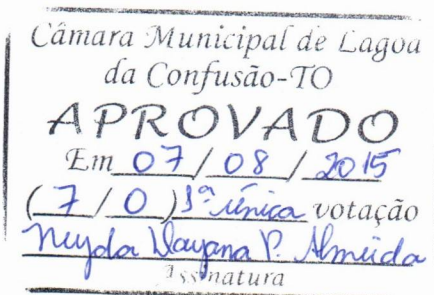 Câmara Municipal de Lagoa
da Confusão-TO
APROVADO
Em 07/08/2015
(7/0) 1ª única votação
Neyda Dayana P. Almeida
Assinatura